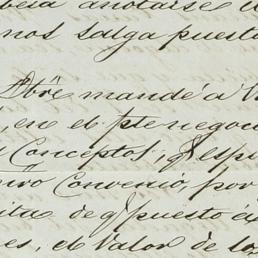 anotarse
nos salga puesto
Abre mandé á V
, en el pte negoc
Conceptos; q esp
nvo Convenio, por
de q puesto
es, el Valor de los